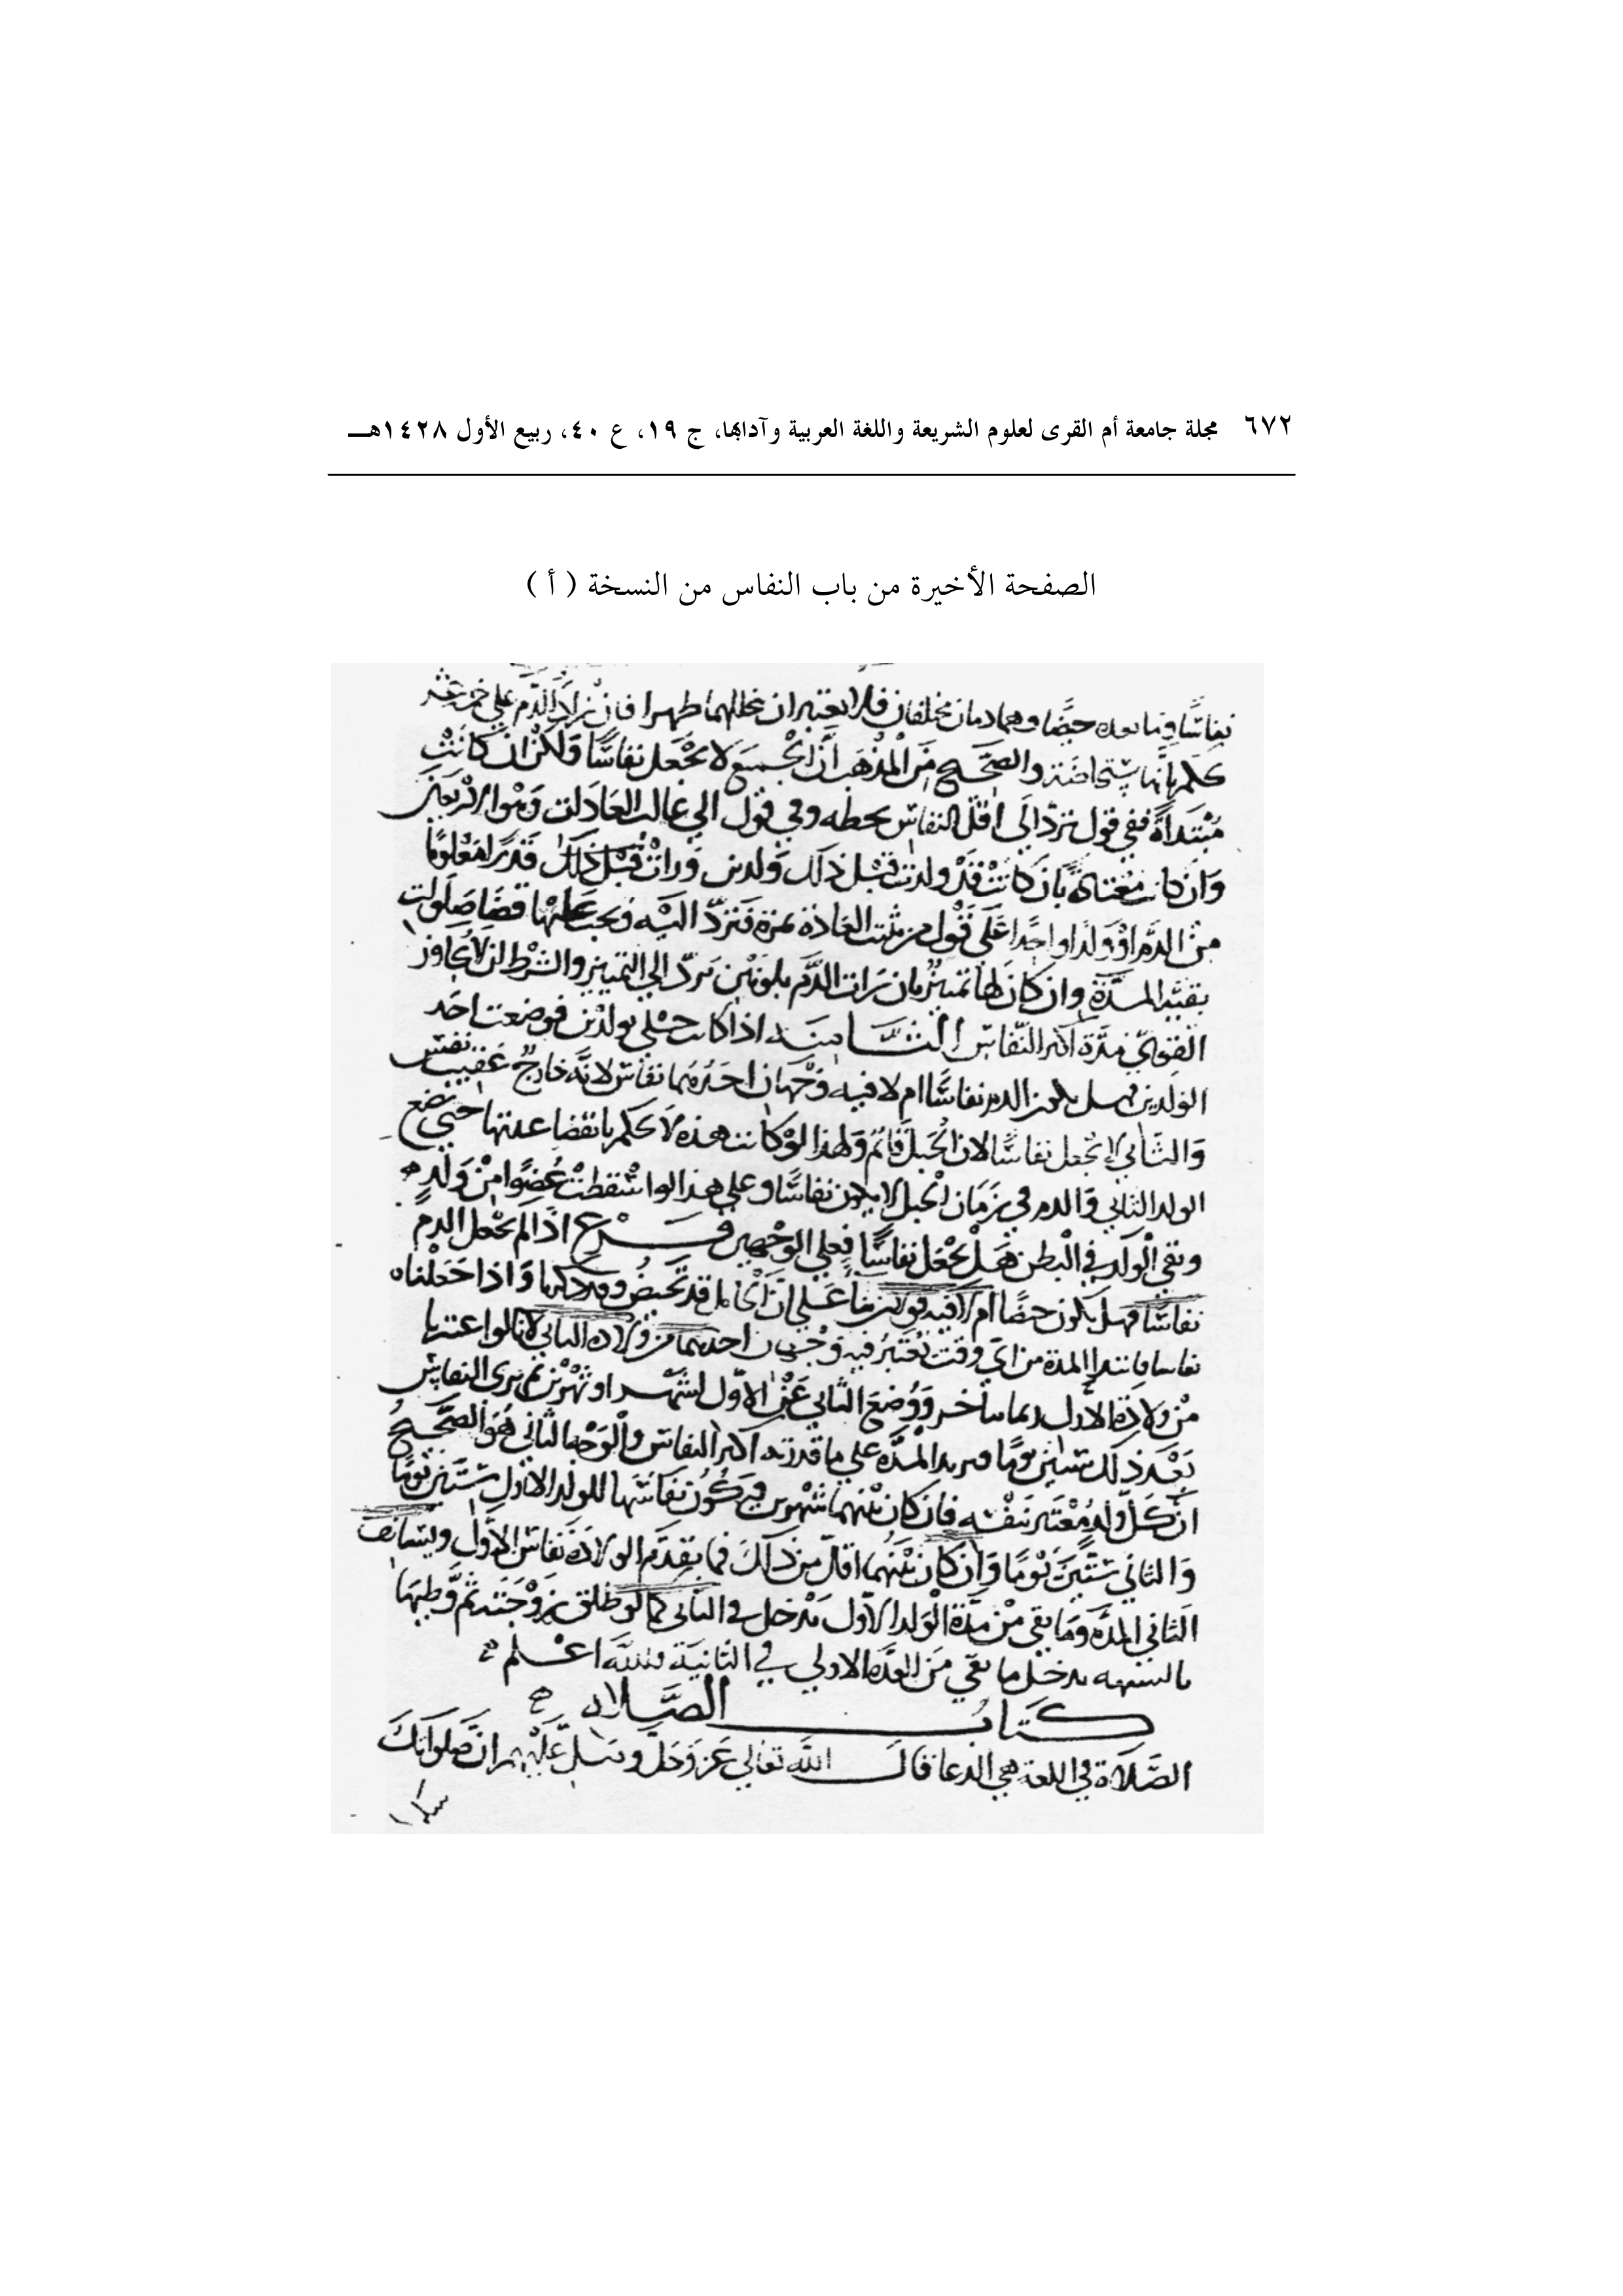 ٦٧٢ مجلة جامعة أم القرى لعلوم الشريعة واللغة العربية وآدابها، ج ١٩، ع ٤٠، ربيع الأول ١٤٢٨هـ
الصفحة الأخيرة من باب النفاس من النسخة ( أ )
نفاسا وما بعده حيضا وهما دمان مختلفان فلا يعتبر ان تخللهما طهرا فان زاد الدم علي خمسة عشر
حكم بانها مستحاضة والصحيح من المذهب أن الجميع لا تجعل نفاسا ولكن ان كانت
مبتداة ففي قول ترد الى اقل النفاس لحظه وفي قول الي غالب العادات وهو اربعين
وان كانت معتادة بان كانت قد ولدت قبل ذلك ولدين ورات قبل ذلك قدرا معلوما
من الدم او ولدا واحدا على قول من يثبت العادة بمرة فترد اليه ويجب عليها قضا صلوات
بقية المدة وان كان لها تمييز بان رات الدم بلونين ترد الي التمييز والشرط ان لا يجاوز
القوي مدة اكثر النفاس الثامنه اذا كانت حبلي بولدين فوضعت احد
الولدين هل يكون الدم نفاسا ام لا فيه وجهان احدهما نفاس لانه خارج عقيب نفس
والثاني لا تجعل نفاسا لان الحبل قائم ولهذا لو كانت هذه لا يحكم بانقضا عدتها حتي تضع
الولد الثاني والدم في زمان الحبل لا يكون نفاسا وعلي هذا لو اسقطت عضوا من ولد
وبقي الولد في البطن هل يجعل نفاسا فعلي الوجهين فرع اذا لم تجعل الدم
نفاسا فهل يكون حيضا ام لا فيه قولين بنا على ان الحامل قد تحيض وقد ذكرنا واذا جعلناه
نفاسا فابتدا المدة من اي وقت يعتبر فيه وجهان احدهما من ولادة الثاني لانا لو اعتبرنا
من ولادة الاول ربما يتاخر ووضع الثاني عن الاول لشهر او شهرين ثم يرى النفاس
بعد ذلك ستين يوما فيزيد المدة علي ما قدرته اكثر النفاس والوجه الثاني هو الصحيح
ان كل ولد معتبر بنفسه فان كان بينهما شهرين فيكون نفاسها للولد الاول ستين يوما
والثاني ستين يوما وان كان بينهما اقل من ذلك فما يقدم الولادة نفاس الاول ويستانف
الثاني المدة وما بقي من مدة الولد الاول يدخل في الثاني كما لو طلق زوجته ثم وطيها
بالشبهه يدخل ما بقي من العدة الاولي في الثانية والله اعلم
كتاب الصلاة
الصلاة في اللغة هي الدعا قال الله تعالي عز وجل وصل عليهم ان صلواتك
سكن